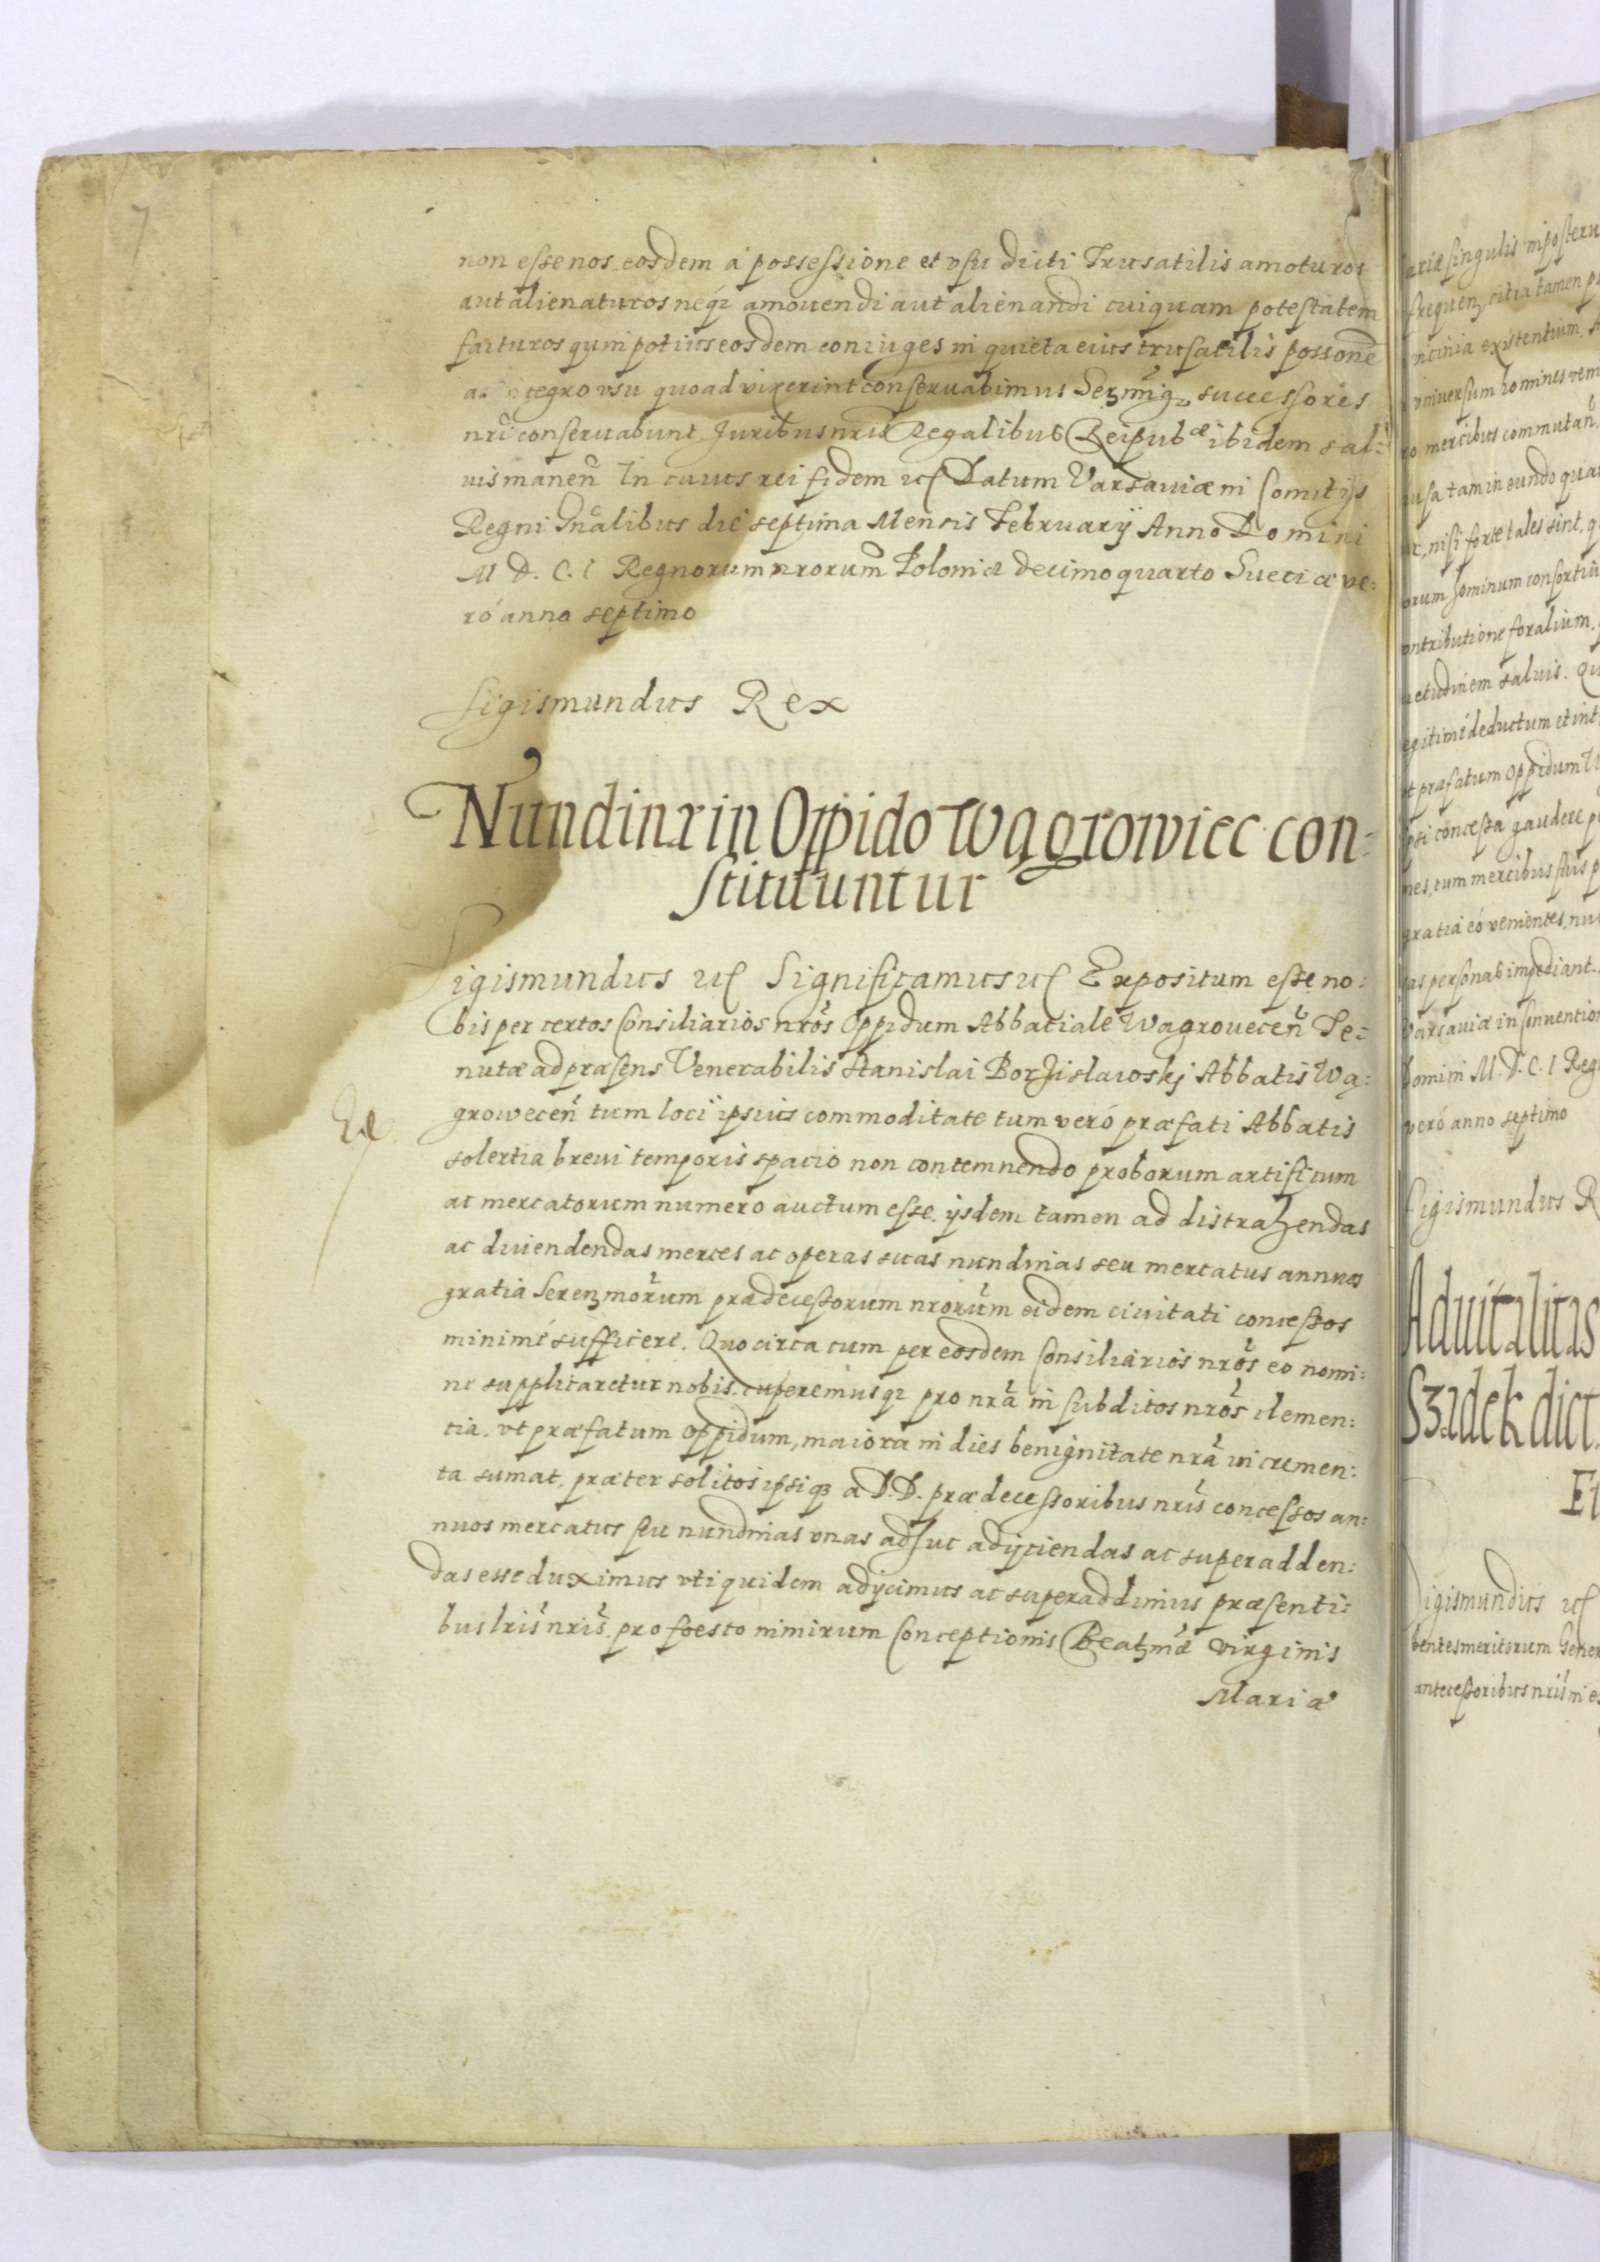 7
non esse nos eosdem á possessione et vsu dicti Trusatilis amoturos
aut alienaturos neq3 amouendi aut alienandi cuiquam potestatem
facturos quin potius eosdem coniuges in quieta eius trusatilis possone
ac integro vsu quoad vixerint conseruabimus Ser3miq3 successores
nri conseruabunt Juribus nris Regalibus Reipubcæ ibidem sal:
uis manen In cuius rei fidem etc Datum Varsauiæ in Comitijs
Regni Gnalibus die septima Mensis Februarij Anno Domini
M D. C. I Regnorum nrorum Poloniæ decimo quarto Sueciæ ve:
ró anno septimo
Sigismundus Rex
Nundinæ in Oppido Wągrowiec con:
stituuntur
Sigismundus etc Significamus etc Expositum esse no:
bis per certos Consiliarios nros Oppidum Abbatiale Wagrouecen Te:
nutæ ad præsens Venerabilis Stanislai Borzislawskj Abbatis Wą:
growecen tum loci ipsius commoditate tum veró præfati Abbatis
solertia breui temporis spacio non contemnendo proborum artificum
ac mercatorum numero auctum esse. ijsdem tamen ad distrahendas
ac diuendendas merces ac operas suas nundinas seu mercatus annuos
gratia Seren3morum prædecessorum nrorum eidem ciuitati concessos
minimé sufficere. Quocirca cum per eosdem Consiliarios nros eo nomi:
ne supplicaretur nobis cuperemusq3 pro nra in subditos nros clemen:
tia, vt præfatum oppidum, maiora in dies benignitate nra incremen:
ta sumat, præter solitos ipsiq3 a D.D. prædecessoribus nris concessos an:
nuos mercatus seu nundinas vnas adhuc adijciendas ac superadden:
das esse duximus vti quidem adijcimus ac superaddimus præsenti:
bus lris nris. pro foesto nimirum Conceptionis Beat3mæ Virginis
Mariæ
ariæ singulis
frequen, citra tamen
existentium
vniuersum homines
mercibus commutan
tam in eundo
nisi forte tales sint,
hominum
contributione foralium
saluis.
legitimé deductum et
præfatum Oppidum
concessa gaudere
cum mercibus suis
gratiá eó venientes,
personas impediant.
Varsauiæ in
Domini M. D. C. I
veró anno septimo
Sigismundus R
Aduitalitas
Szadek dict
Sigismundus etc
meritorum
antecessoribus nris